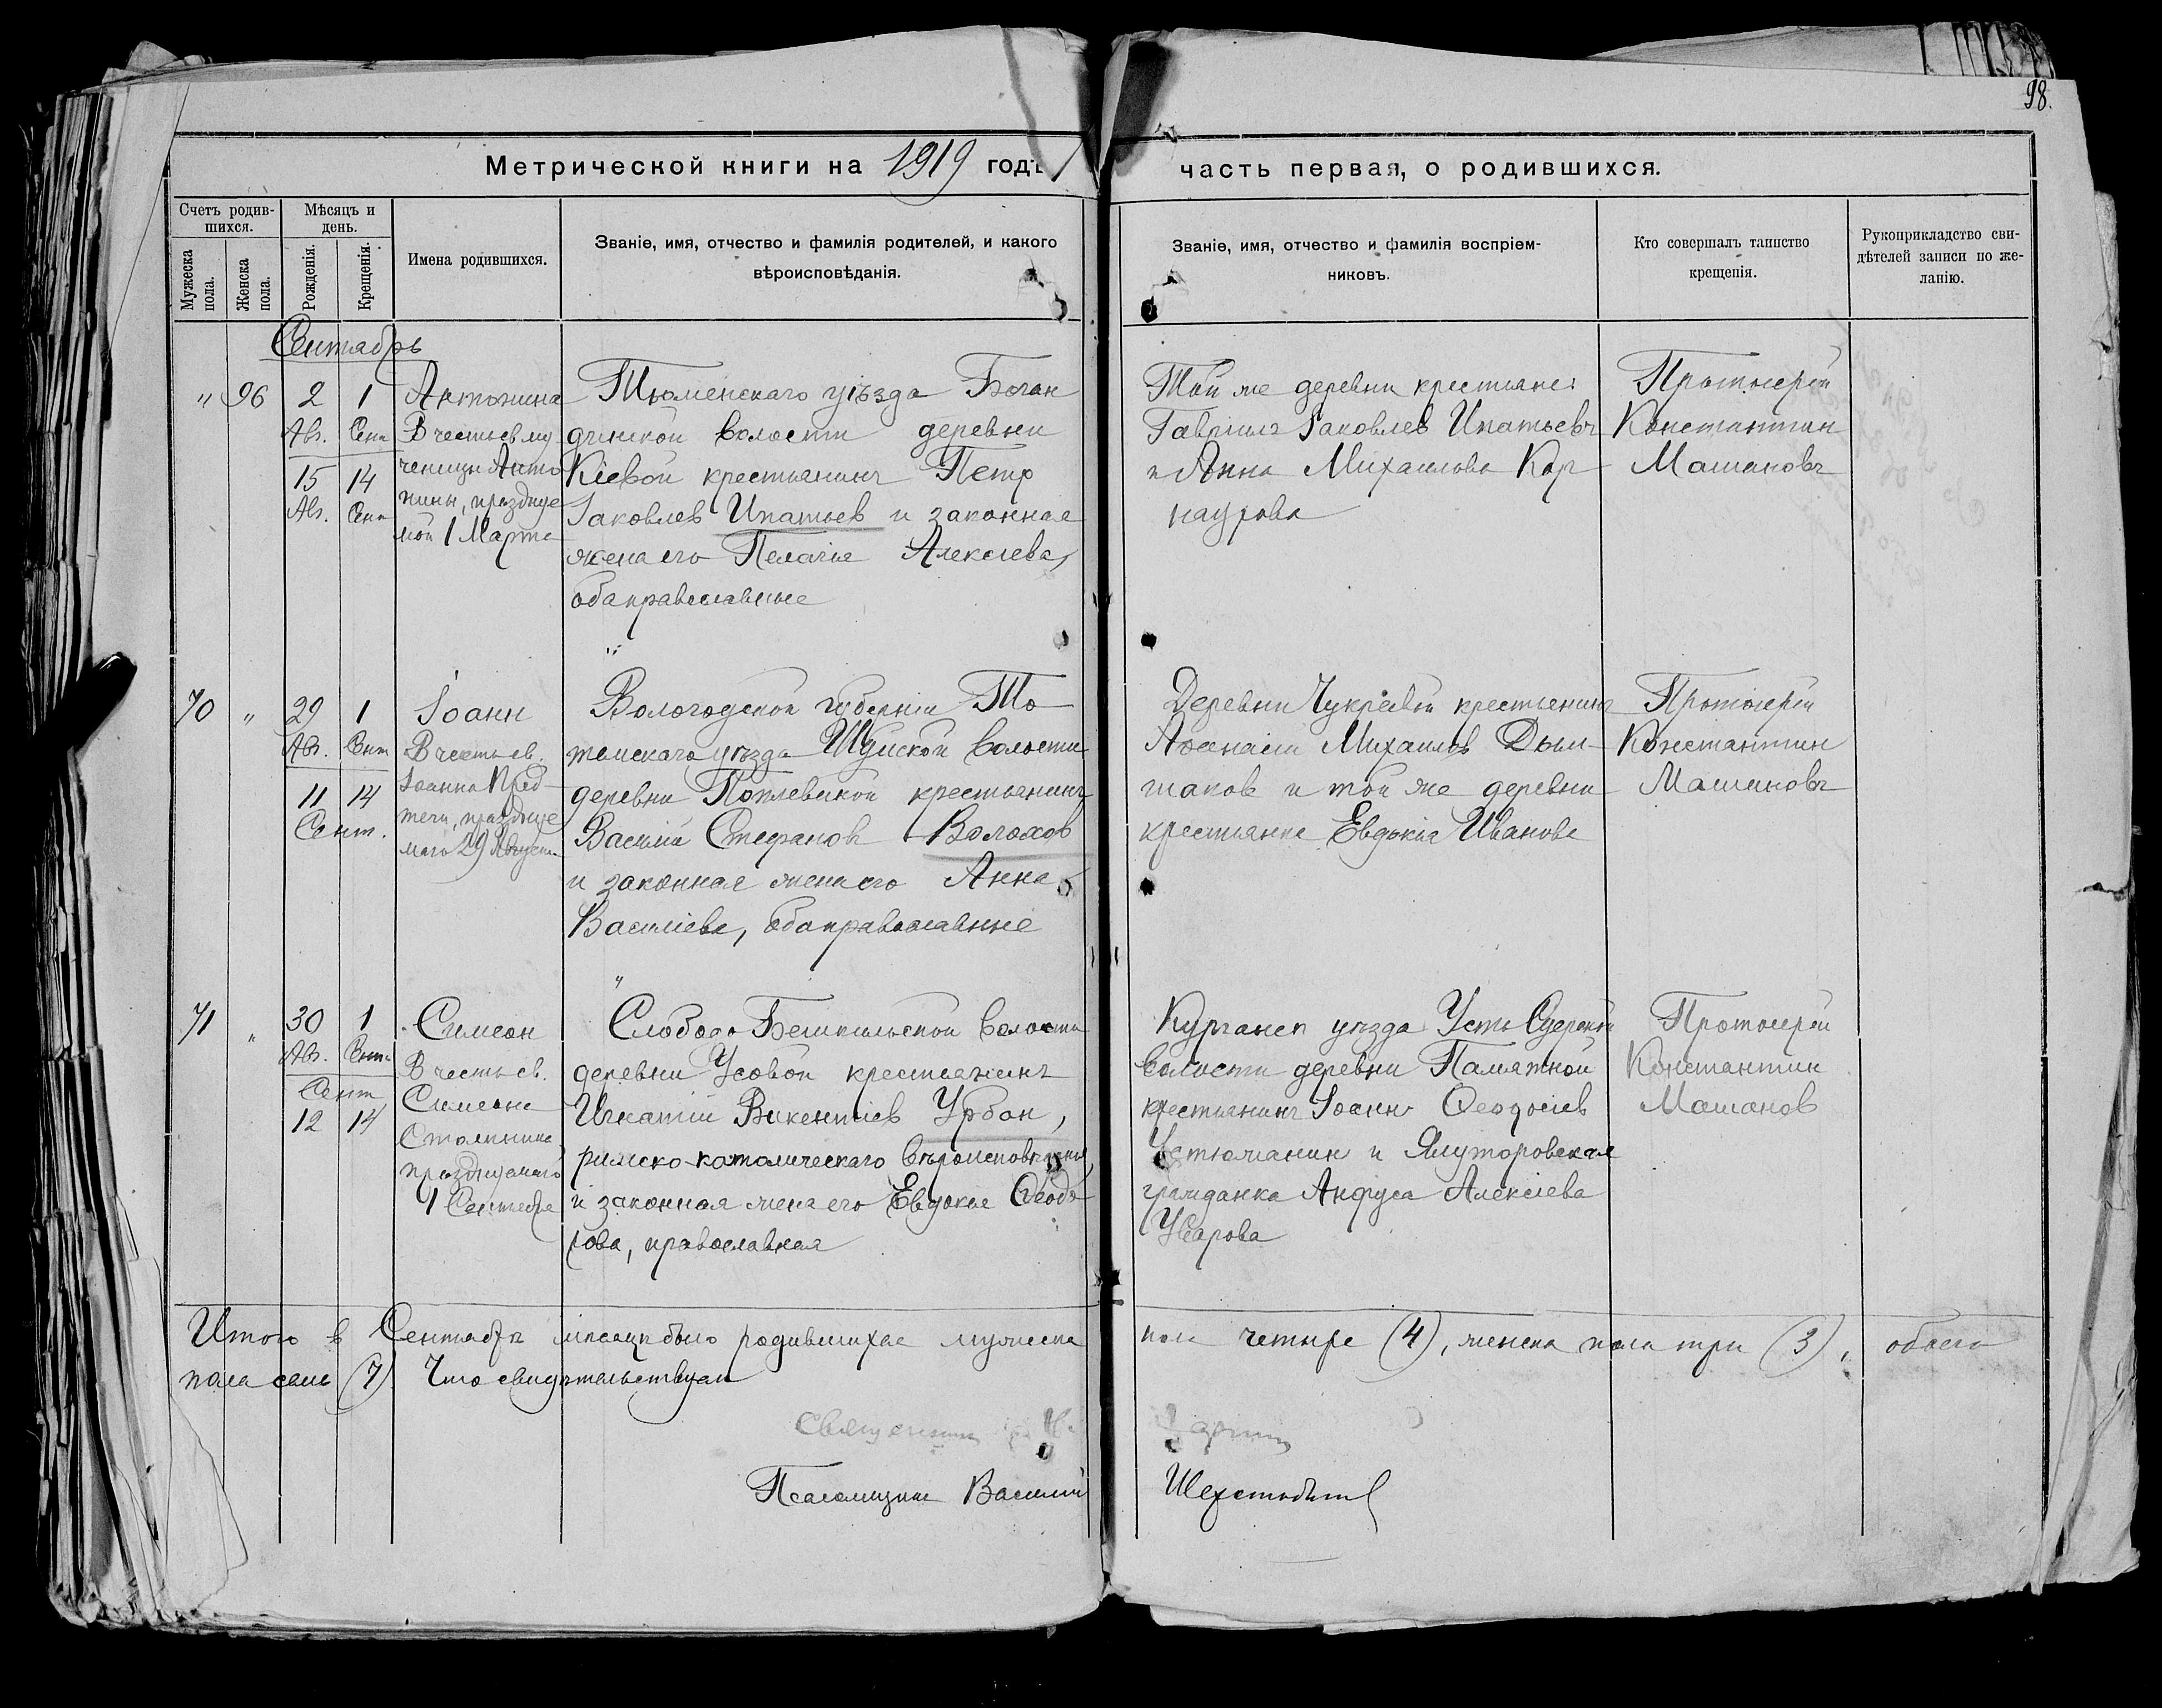 98.
Метрической книги на 1919 годъ
часть первая, о родившихся.
Счетъ родив-
шихся.
Мѣсяцъ и
день.
Мужеска
пола.
Женска
пола.
Рожденія.
Крещенія.
Имена родившихся.
Званіе, имя, отчество и фамилія родителей, и какого
вѣроисповѣданія.
Званіе, имя, отчество и фамилія воспріем-
никовъ.
Кто совершалъ таинство
крещенія.
Рукоприкладство сви-
дѣтелей записи по же-
ланію.
Сентябрь
" 96
2 1
Авг. Сент
15 14
Авг. Сент
Антонина
В честь св му
ченицы Анто
нины, празднуе
мой 1 Марта
Тюменскаго уѣзда Боган
динской волости деревни
Кіевой крестьянинъ Петр
Іаковлев Ипатьев и законная
жена его Пелагия Алексіева,
оба православные
Той же деревни крестьяне:
Гавріилъ Іаковлев Ипатьевъ
и Анна Михаилова Кар
наухова
Протоіерей
Константин
Машановъ
70 "
29 1
Авг. Сент
11 14
Сент.
Іоанн
В честь св.
Іоанна Пред
течи, праздкуе
маго 29 Августа
Вологодской губерніи То
темскаго уѣзда Шуйской волости
деревни крестьянинъ
Василій Стефанов Волохов
и законная жена его Анна
Василіева, оба православные
Деревни Чукреевой крестьянинъ
Аѳанасій Михаилов Дым
шаков и той же деревни
крестьянка Евдокія Иванова
Протоіерей
Константин
Машановъ
71 "
30 1
Авг. Сент
Сент
12 14
Симеон
В честь св.
Симеона
Столпника,
празднуемаго
1 Сентября
Слободо Бешкильской волости
деревни Усовой крестьянинъ
Игнатій Викентіев Урбан,
римско-католическаго вѣроисповѣданія
и законная жена его Евдокия Ѳеодо
рова, православная
Курганск уѣзда Усть Суерской
волости деревни Памятной
крестьянинъ Іоанн Ѳеодосіев
Устюжанин и Ялуторовская
гражданка Анфуса Алексіева
Уварова
Протоіерей
Константин
Машанов
Итого в Сентябрѣ мѣсяцѣ было родившихся мужеска
пола четыре (4), женска пола три (3), обоего
пола семь (7) Что свидѣтельствуем
Священник
Псаломщик Василий Шерстобитов